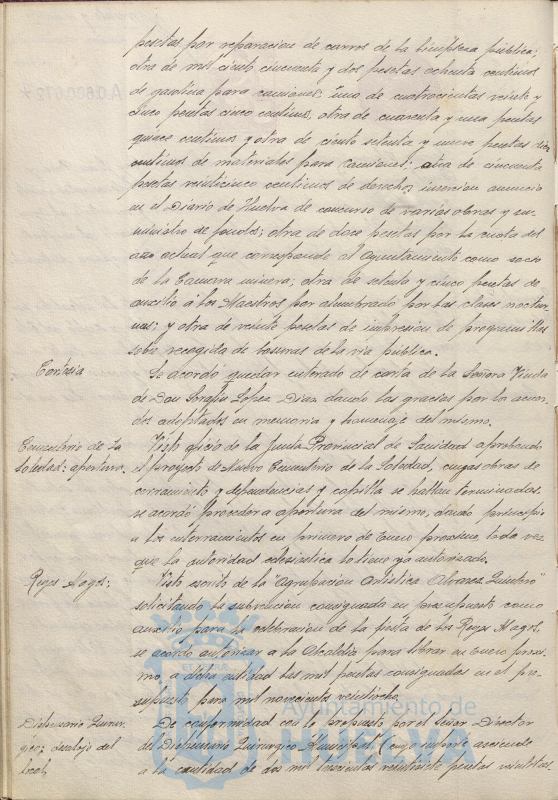 pesetas por reparacion de carros de la limpieza pública;
otra de mil ciento cincuenta y dos pesetas ochenta centimos
de gasolina para camiones; una de cuatrocientas veinte y
cinco pesetas cinco centimos, otra de cuarenta y una pesetas
quince centimos y otra de ciento setenta y nueve pesetas diez
centimos de materiales para camiones; otra de cincuenta
pesetas veinticinco centimos de derechos insercion anuncio
en el Diario de Huelva de concurso de varias obras y su-
ministro de faroles; otra de doce pesetas por la cuota del
año actual que corresponde al Ayuntamiento como socio
de la Camara minera; otra de setenta y cinco pesetas de
auxilio á los Maestros por alumbrado por las clases noctur-
nas; y otra de veinte pesetas de impresion de programillas
sobre recogida de basuras de la via pública.
Cortesia
Se acordó quedar enterado de carta de la Señora Viuda
de Don Serafin Lopez Diaz dando las gracias por los acuer-
dos adoptados en memoria y homenaje del mismo.
Cementerio de la
Soledad: apertura.
Visto oficio de la Junta Provincial de Sanidad aprobando
el proyecto de Nuevo Cementerio de la Soledad, cuyas obras de
cerramiento y dependencias y capilla se hallan terminadas,
se acordó proceder a apertura del mismo, dando principio
a los enterramientos en primero de Enero proximo, toda vez
que la autoridad eclesiastica lo tiene ya autorizado.
Reyes Magos:
Visto escrito de la "Agrupacion Artistica Alvarez Quintero"
solicitando la subvencion consignada en presupuesto como
auxilio para la celebracion de la fiesta de los Reyes Magos,
se acordó autorizar a la Alcaldia para librar en Enero proxi-
mo, a dicha entidad las mil pesetas consignadas en el pre-
supuesto para mil novecientos veintiocho.
Dispensario Quirur-
gico; desalojo del
local,
De conformidad con lo propuesto por el Señor Director
del Dispensario Quirurgico Municipal, (cuyo importe asciende
a la cantidad de dos mil trescientas veintisiete pesetas veintitres
Ayuntamiento de
HUELVA